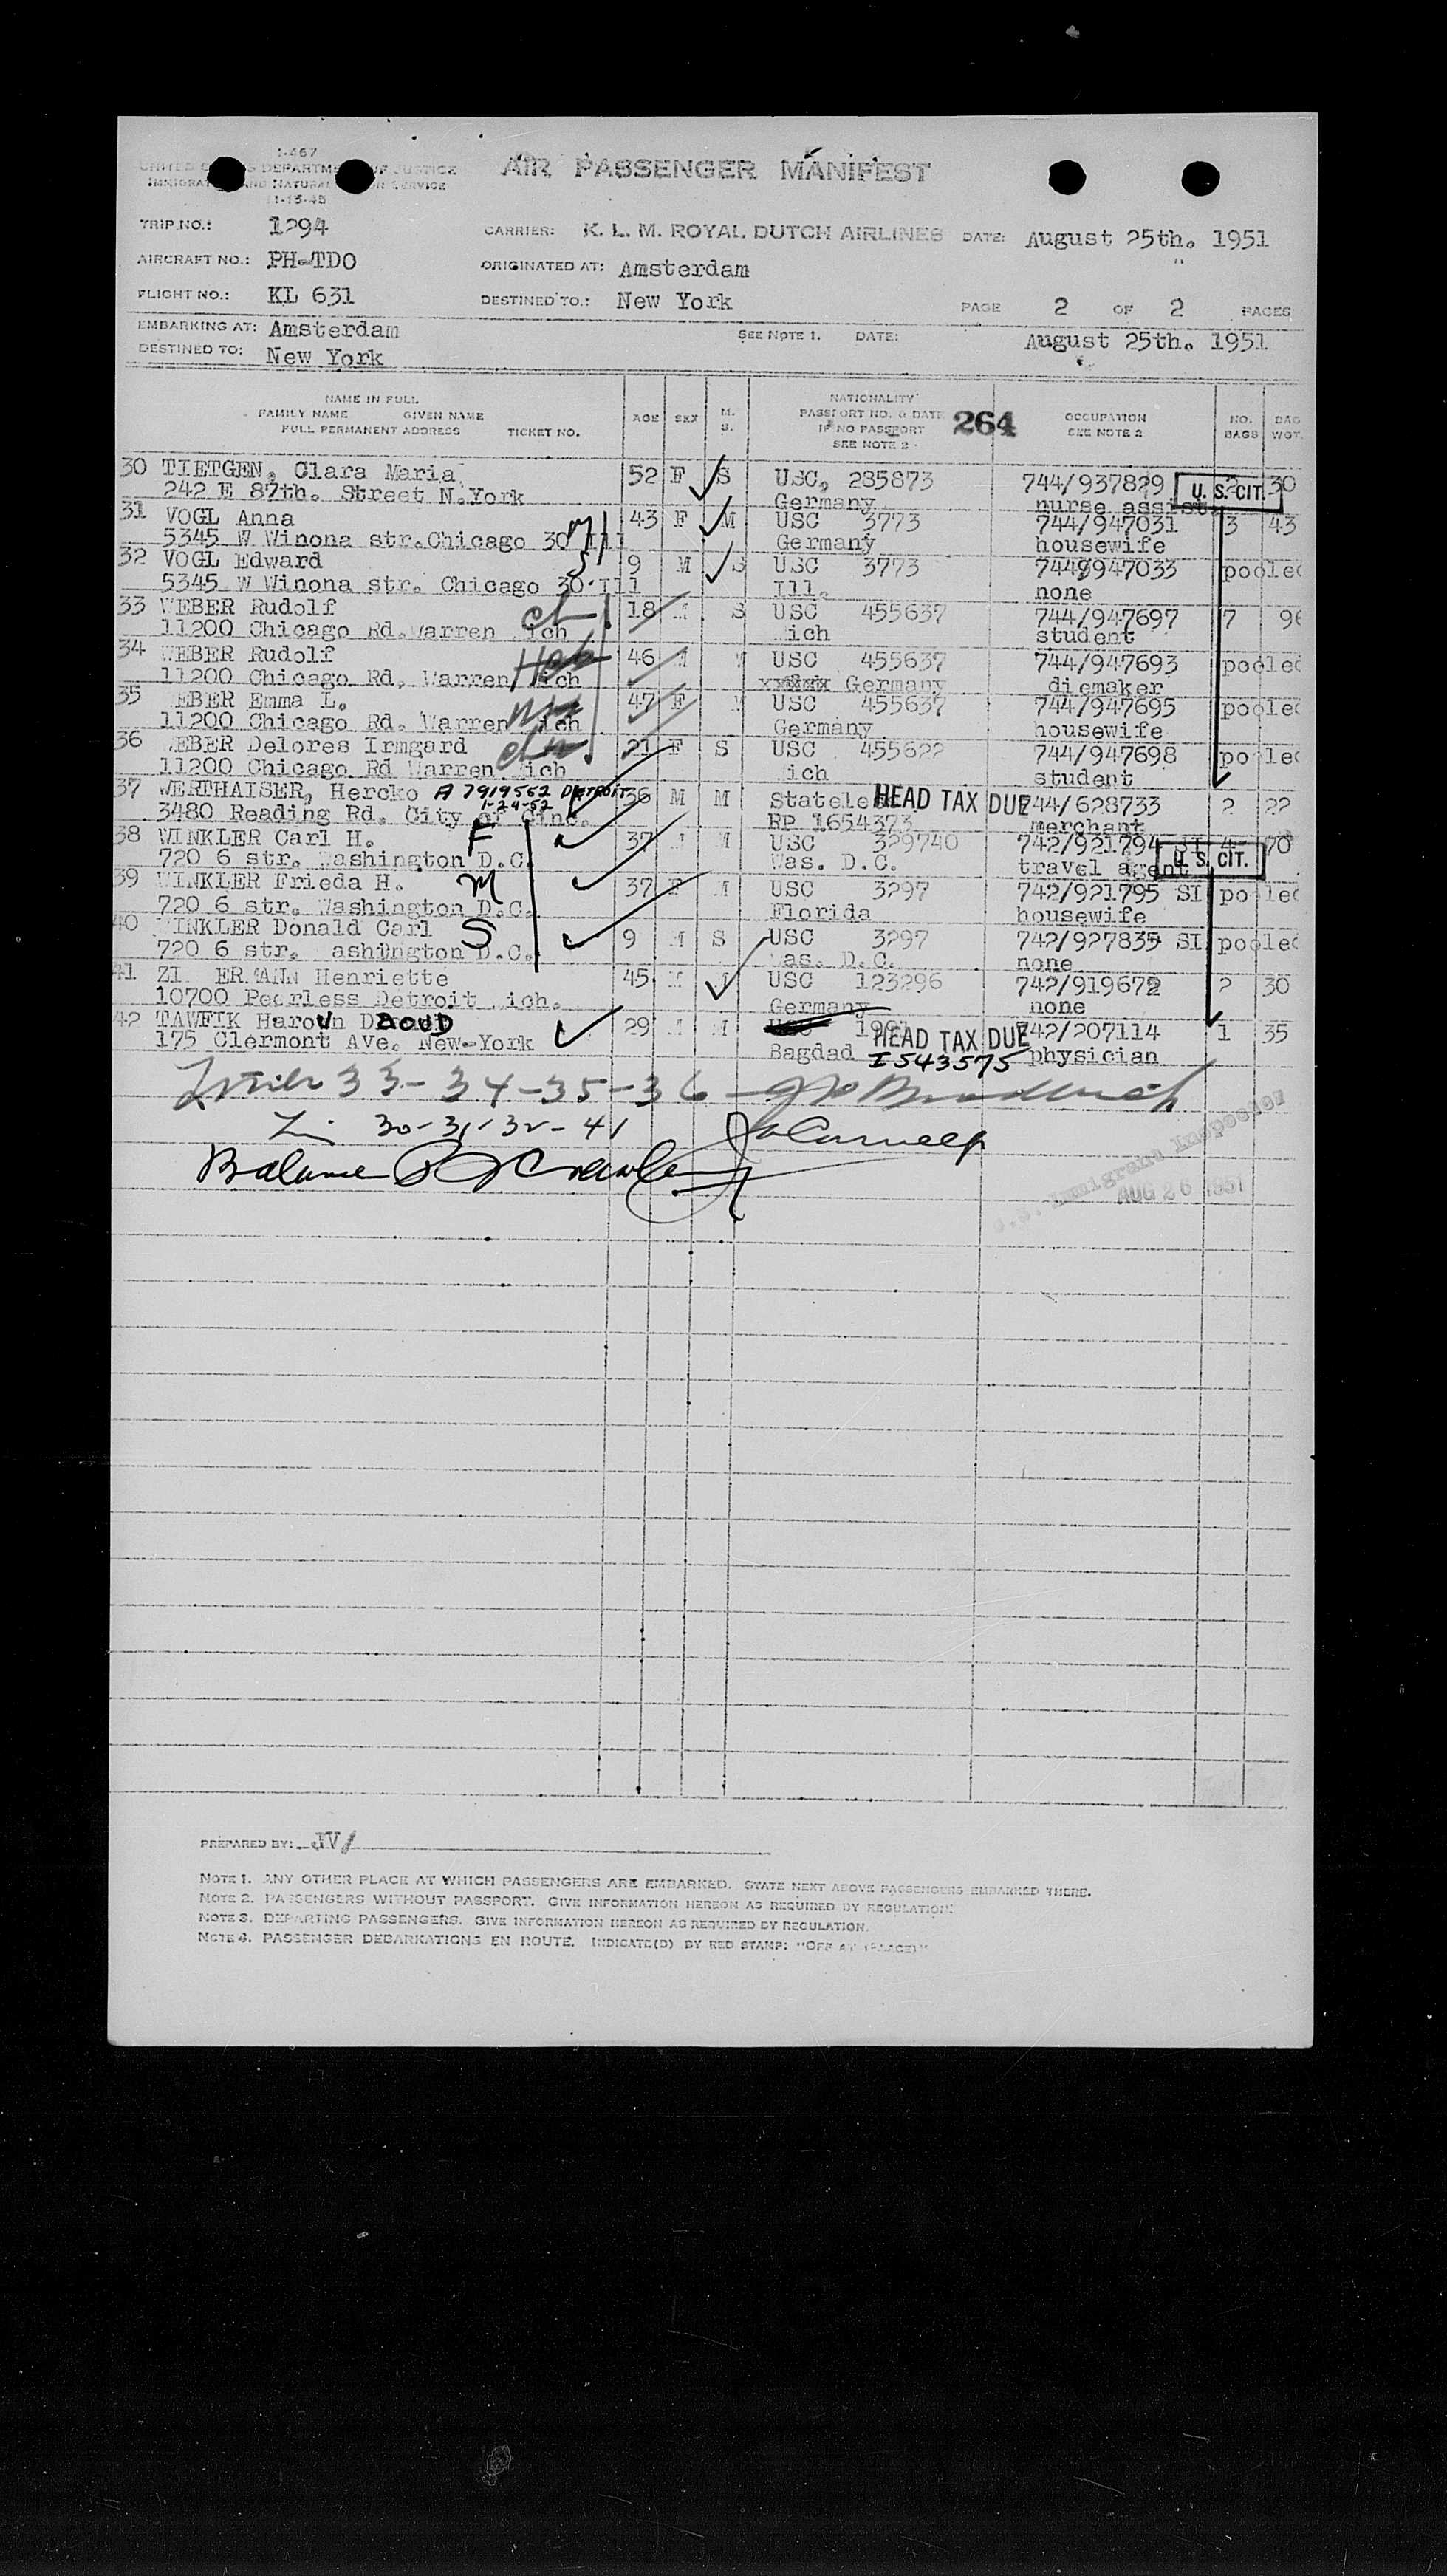 I-467
UNITED S S DEPARTME OF JUSTICE
IMMIGRAT AND NATURAL ON SERVICE
11-15-48
AIR PASSENGER MANIFEST
TRIP NO.: 1294 CARRIER: K. L. M. ROYAL DUTCH AIRLINES DATE: August 25th. 1951
AIRCRAFT NO.: PH-TDO ORIGINATED AT: Amsterdam
FLIGHT NO.: KL 631 DESTINED TO.: New York PAGE 2 OF 2 PAGES
EMBARKING AT: Amsterdam SEE NOTE 1. DATE: August 25th. 1951
DESTINED TO: New York
NAME IN FULL
FAMILY NAME GIVEN NAME
FULL PERMANENT ADDRESS TICKET NO.
AGE SEX M. S.
NATIONALITY
PASSPORT NO. & DATE
IF NO PASSPORT
SEE NOTE 2
264
OCCUPATION
SEE NOTE 2
NO. BAGS
BAG WGT.
30 TIETGEN, Clara Maria 52 F S USC, 285873 744/937829 U. S. CIT. 2 30
242 E 87th. Street N.York Germany nurse assist.
31 VOGL Anna M 43 F M USC 3773 744/947031 3 43
5345 W Winona str.Chicago 30 Ill Germany housewife
32 VOGL Edward S 9 M S USC 3773 744/947033 pooled
5345 W Winona str. Chicago 30 Ill Ill. none
33 WEBER Rudolf ch 18 M S USC 455637 744/947697 7 96
11200 Chicago Rd.Warren ich ich student
34 WEBER Rudolf 46 M M USC 455637 744/947693 pooled
11200 Chicago Rd, Warren ich xxxxxx Germany diemaker
35 EBER Emma L. 47 F M USC 455637 744/947695 pooled
11200 Chicago Rd. Warren ich Germany housewife
36 EBER Delores Irmgard 21 F S USC 455622 744/947698 pooled
11200 Chicago Rd Warren ich ich student
37 WERTHAISER, Hercko A 7919552 DETROIT 36 M M Statele HEAD TAX DUE 744/628733 2 22
1-24-52
3480 Reading Rd. City of Cinc. RP 1654373 merchant
38 WINKLER Carl H. F 37 M M USC 329740 742/921794 SI 4 70
720 6 str. Washington D.C. Was. D.C. travel agent U. S. CIT.
39 WINKLER Frieda H. M 37 F M USC 3297 742/921795 SI pooled
720 6 str. Washington D.C. Florida housewife
40 INKLER Donald Carl S 9 M S USC 3297 742/927835 SI pooled
720 6 str. ashington D.C. as. D.C. none
41 ZI ERMANN Henriette 45 M M USC 123296 742/919672 2 30
10700 Peerless Detroit ich. Germany none
42 TAWFIK Haroun DAOUD 29 M M HEAD TAX DUE 742/207114 1 35
175 Clermont Ave. New-York Bagdad I 543575 physician
33-34-35-36
30-31-32-41
Balance
U.S. Immigrant Inspector
AUG 26 1951
PREPARED BY: JV/
NOTE 1. ANY OTHER PLACE AT WHICH PASSENGERS ARE EMBARKED. STATE NEXT ABOVE PASSENGERS EMBARKED THERE.
NOTE 2. PASSENGERS WITHOUT PASSPORT. GIVE INFORMATION HEREON AS REQUIRED BY REGULATION.
NOTE 3. DEPARTING PASSENGERS. GIVE INFORMATION HEREON AS REQUIRED BY REGULATION.
NOTE 4. PASSENGER DEBARKATIONS EN ROUTE. INDICATE(D) BY RED STAMP: "OFF AT (PLACE)"